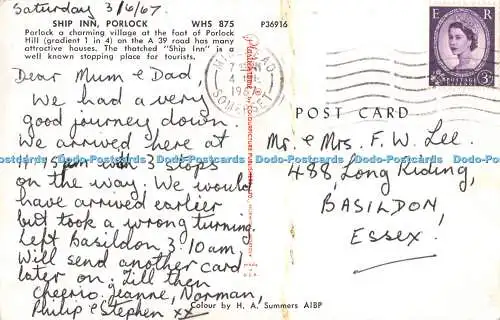 Saturday 3/6/67
SHIP INN, PORLOCK WHS 875 P36916
Porlock a charming village at the foot of Porlock
Hill (gradient 1 in 4) on the A 39 road has many
attractive houses. The thatched "Ship Inn" is a
well known stopping place for tourists.
Dear Mum & Dad,
We had a very
good journey down.
We arrived here at
with 3 stops
on the way. We would
have arrived earlier
but took a wrong turning.
Left Basildon 3.10am,
Will send another card
later on, Till then
cheerio. Jeanne, Norman,
Philip & Stephen xx
Colour by H. A. Summers AIBP
4
1967
SOMERSET
E R
POSTAGE
3D
POST CARD
Mr. & Mrs. F. W. Lee.
488, Long Riding,
BASILDON,
ESSEX.
Dodo-Postcards Dodo-Postcards Dodo-Postcards Dodo-Postcards Dodo-Postcards